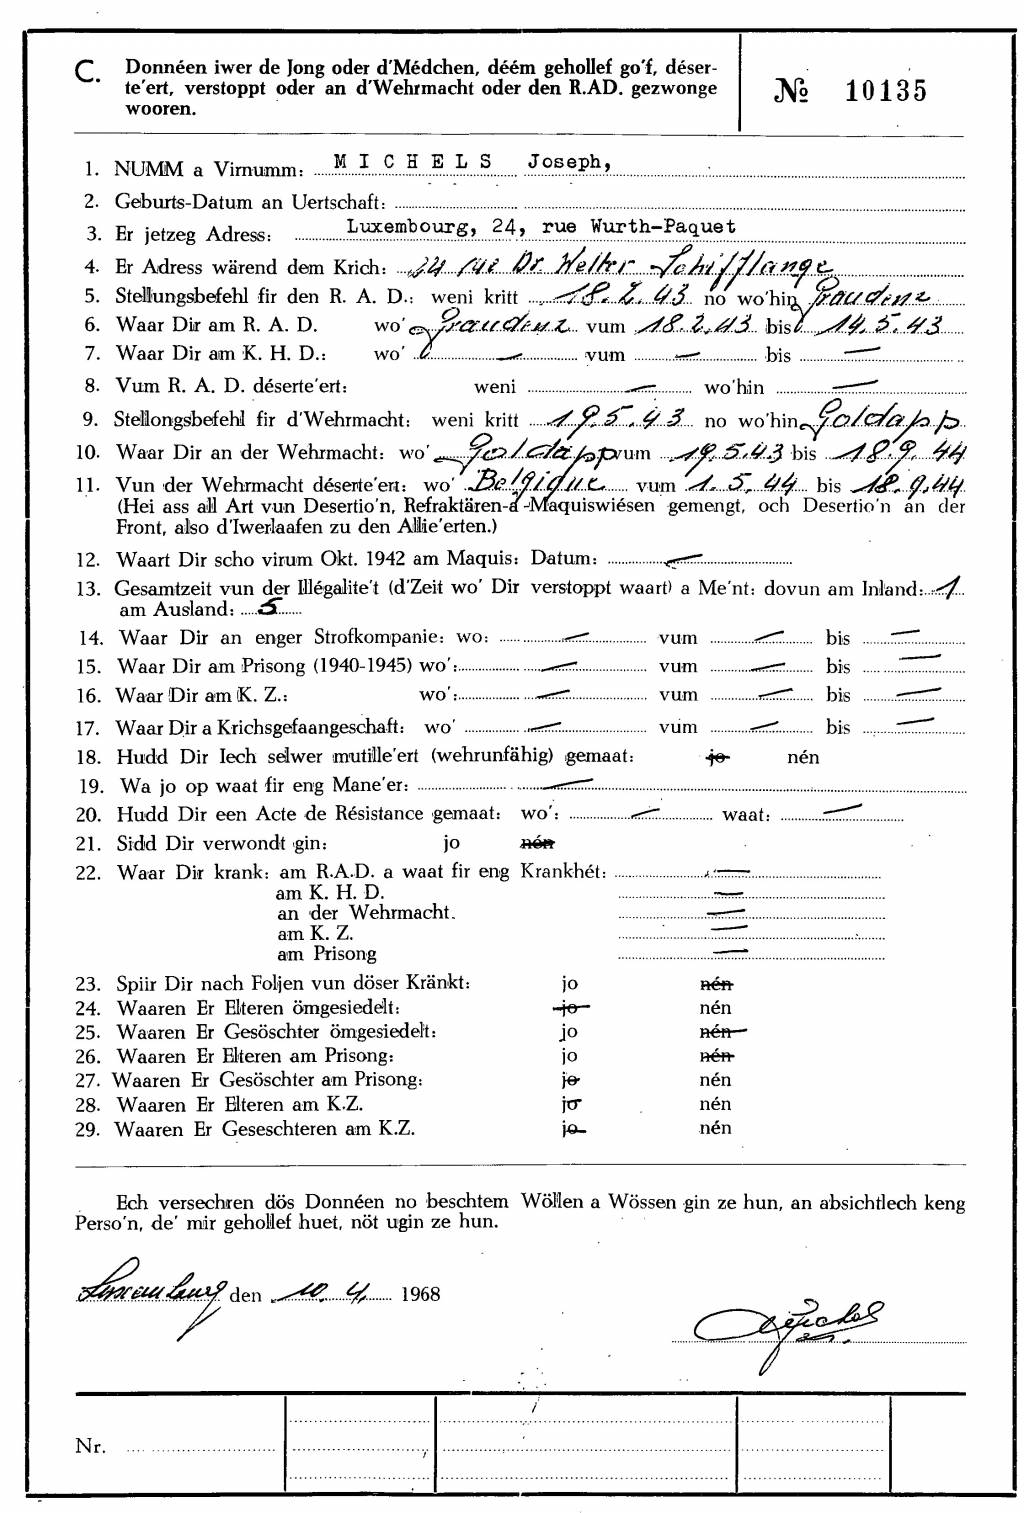 C. Donnéen iwer de Jong oder d'Médchen, déém gehollef go'f, déser-
te'ert, verstoppt oder an d'Wehrmacht oder den R.AD. gezwonge
wooren.
№ 10135
1. NUMM a Virnumm: MICHELS Joseph,
2. Geburts-Datum an Uertschaft:
3. Er jetzeg Adress: Luxembourg, 24, rue Wurth-Paquet
4. Er Adress wärend dem Krich: 24 rue Dr. Welter Schifflange
5. Stellungsbefehl fir den R. A. D.: weni kritt 18.2.43 no wo'hin Graudenz
6. Waar Dir am R. A. D. wo' Graudenz vum 18.2.43 bis 14.5.43
7. Waar Dir am K. H. D.: wo' — vum — bis —
8. Vum R. A. D. déserte'ert: weni — wo'hin —
9. Stellongsbefehl fir d'Wehrmacht: weni kritt 19.5.43 no wo'hin Goldapp
10. Waar Dir an der Wehrmacht: wo' Goldapp vum 19.5.43 bis 18.9.44
11. Vun der Wehrmacht déserte'ert: wo' Belgique vum 1.5.44 bis 18.9.44
(Hei ass all Art vun Desertio'n, Refraktären-a -Maquiswiésen gemengt, och Desertio'n an der
Front, also d'Iwerlaafen zu den Allie'erten.)
12. Waart Dir scho virum Okt. 1942 am Maquis: Datum: —
13. Gesamtzeit vun der Illégalite't (d'Zeit wo' Dir verstoppt waart) a Me'nt: dovun am Inland: 1
am Ausland: 5
14. Waar Dir an enger Strofkompanie: wo: — vum — bis —
15. Waar Dir am Prisong (1940-1945) wo': — vum — bis —
16. Waar Dir am K. Z.: wo': — vum — bis —
17. Waar Dir a Krichsgefaangeschaft: wo' — vum — bis —
18. Hudd Dir Iech selwer mutille'ert (wehrunfähig) gemaat: jo nén
19. Wa jo op waat fir eng Mane'er: —
20. Hudd Dir een Acte de Résistance gemaat: wo': — waat: —
21. Sidd Dir verwondt gin: jo nén
22. Waar Dir krank: am R.A.D. a waat fir eng Krankhét: —
am K. H. D. —
an der Wehrmacht. —
am K. Z. —
am Prisong —
23. Spiir Dir nach Foljen vun döser Kränkt: jo nén
24. Waaren Er Elteren ömgesiedelt: jo nén
25. Waaren Er Gesöschter ömgesiedelt: jo nén
26. Waaren Er Elteren am Prisong: jo nén
27. Waaren Er Gesöschter am Prisong: jo nén
28. Waaren Er Elteren am K.Z. jo nén
29. Waaren Er Geseschteren am K.Z. jo nén
Ech versechren dös Donnéen no beschtem Wöllen a Wössen gin ze hun, an absichtlech keng
Perso'n, de' mir gehollef huet, nöt ugin ze hun.
Luxembourg den 10.4. 1968
Nr.